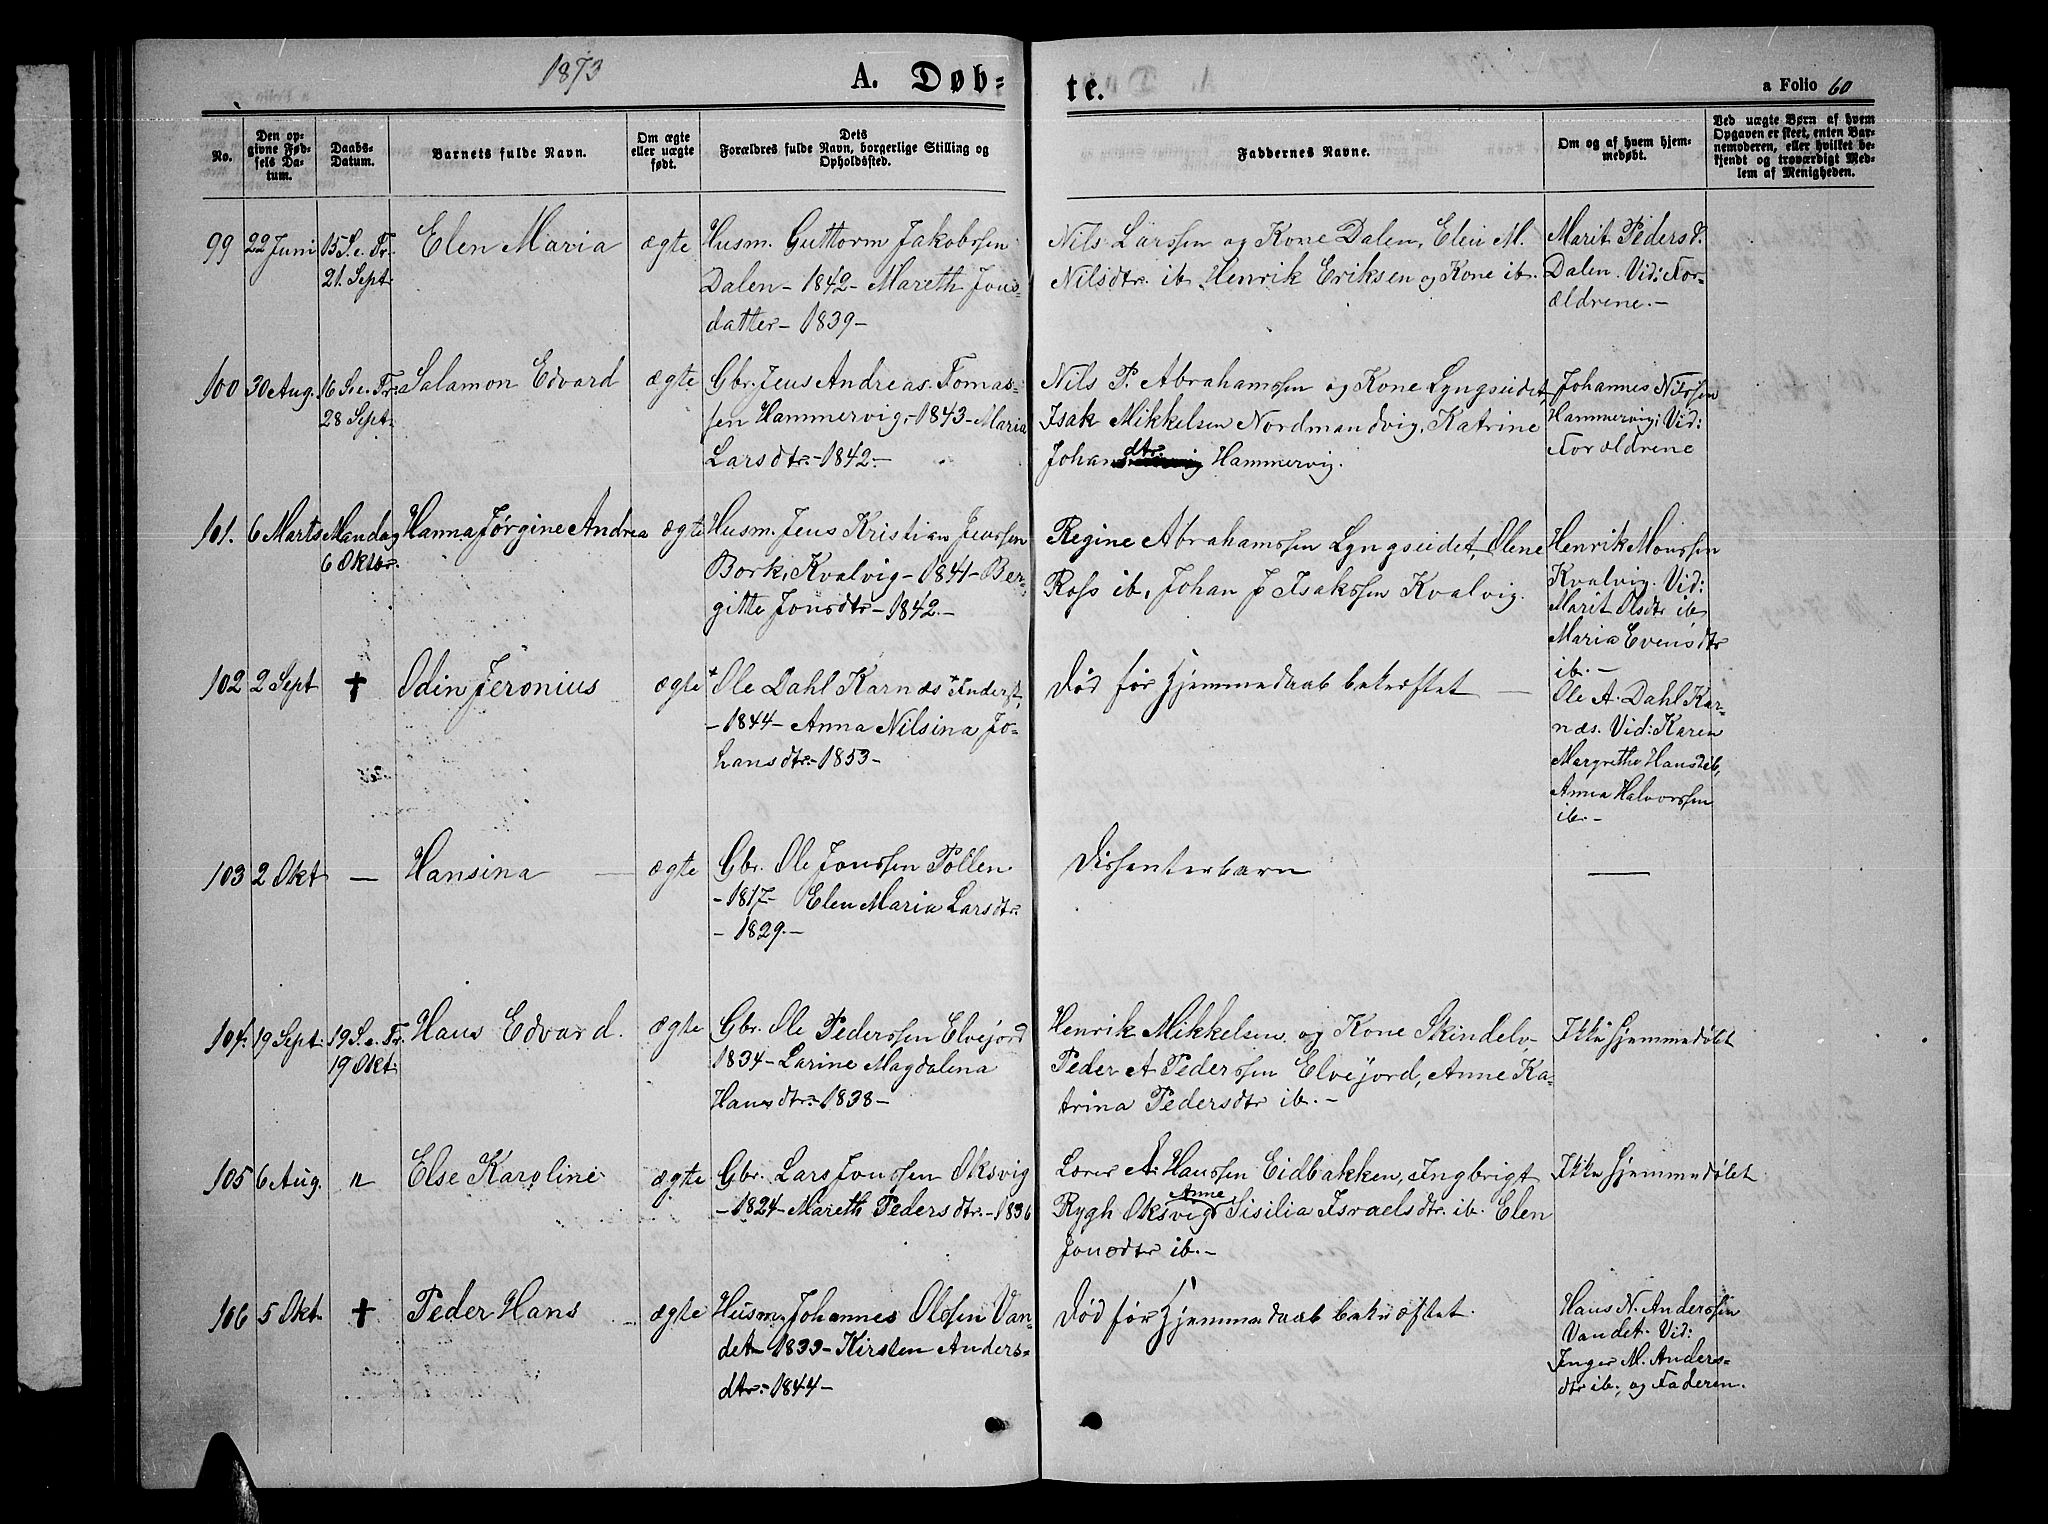 1873
A. Døb=
te.
a Folio 60
No.
Den op=
givne Fød=
sels Da=
tum.
Daabs=
Datum.
Barnets fulde Navn.
Om ægte
eller uægte
født.
Dets
Forældres fulde Navn, borgerlige Stilling og
Opholdssted.
Faddernes Navne.
Om og af hvem hjem=
medøbt.
Ved uægte Børn af hvem
Opgaven er skeet, enten Bar=
nemoderen, eller hvilket be=
kjendt og troværdigt Med=
lem af Menigheden.
99 22 Juni 15 S. e. Tr. 21. Sept Elen Maria ægte
Husm. Guttorm Jakobssen
Dalen - 1842 - Mareth Jons=
datter - 1839 -
Nils Larssen og Kone Dalen, Elen M.
Nilsdtr. ib. Henrik Eriksen og Kone ib.
Marit Pedersd.
Dalen. Vid: For=
ældrene. -
100 30 Aug. 16 S. e. Tr. 28 Sept. Salamon Edvard ægte
Gbr. Jens Andreas Tomas=
sen Hammervig - 1843 - Maria
Larsdtr. - 1842 -
Nils P. Abrahamssen og Kone Lyngseidet,
Isak Mikkelsen Nordmandvig, Katrine
Johansdtr. Hammervig.
Johannes Nilssen
Hammervig: Vid:
Forældrene
101. 6 Marts Mandag 6 Oktbr. Hanna Jørgine Andrea ægte
Husm. Jens Kristian Jenssen
Bork, Kvalvig - 1841 - Ber=
gitte Jonsdtr - 1842 -
Regine Abrahamssen Lyngseidet, Olene
Ross ib, Johan P Isakssen Kvalvig.
Henrik Monssen
Kvalvig. Vid:
Marit Olsdtr ib
Maria Evensdtr
ib. -
102 2 Sept † Odin Jeronius ægte
+ Ole Dahl Karnæs + Anders.
- 1844 - Anna Nilsina Jo=
hansdtr - 1853 -
Død før Hjemmedaab bekræftet -
Ole A. Dahl Kar=
næs. Vid: Karen
Margrethe Hansd ib,
Anna Halvorssen
ib. -
103 2 Okt - Hansina - ægte
Gbr. Ole Jonssen Pollen
- 1817 - Elen Maria Larsdtr.
- 1829 -
Dissenterbarn
104. 19 Sept. 19 S. e. Tr. 19 Okt. Hans Edvard. ægte
Gbr. Ole Pederssen Elvejord
1834 - Larine Magdalena
Hansdtr - 1838 -
Henrik Mikkelsen og Kone Skindelv,
Peder A Pederssen Elvejord, Anne Ka=
trina Pedersdtr ib. -
Ikke hjemmedøbt
105 6 Aug. " Else Karoline ægte
Gbr. Lars Jonssen Oksvig
- 1824 - Mareth Pedersdtr. - 1836
Lærer A. Hanssen Eidbakken, Ingbrigt
Rygh Oksvig Anne Sisilia Israelsdtr. ib. Elen
Jonsdtr ib. -
Ikke hjemmedøbt
106 5 Okt. † Peder Hans ægte
Husm. Johannes Olssen Van=
det - 1833 - Kirsten Anders=
dtr. - 1844 -
Død før Hjemmedaab bekræftet.
Hans N. Anderssen
Vandet. Vid:
Inger M. Anders=
dtr ib., og Faderen.